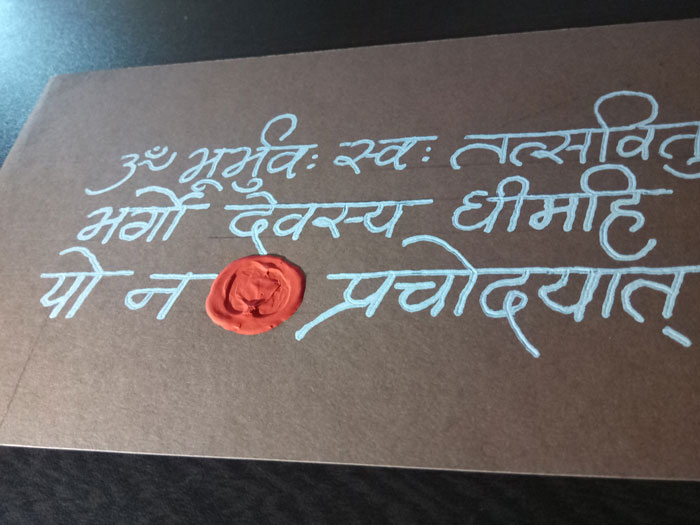 ॐ भूर्भुवः स्वः तत्सवितु
भर्गो देवस्य धीमहि
यो न प्रचोदयात्